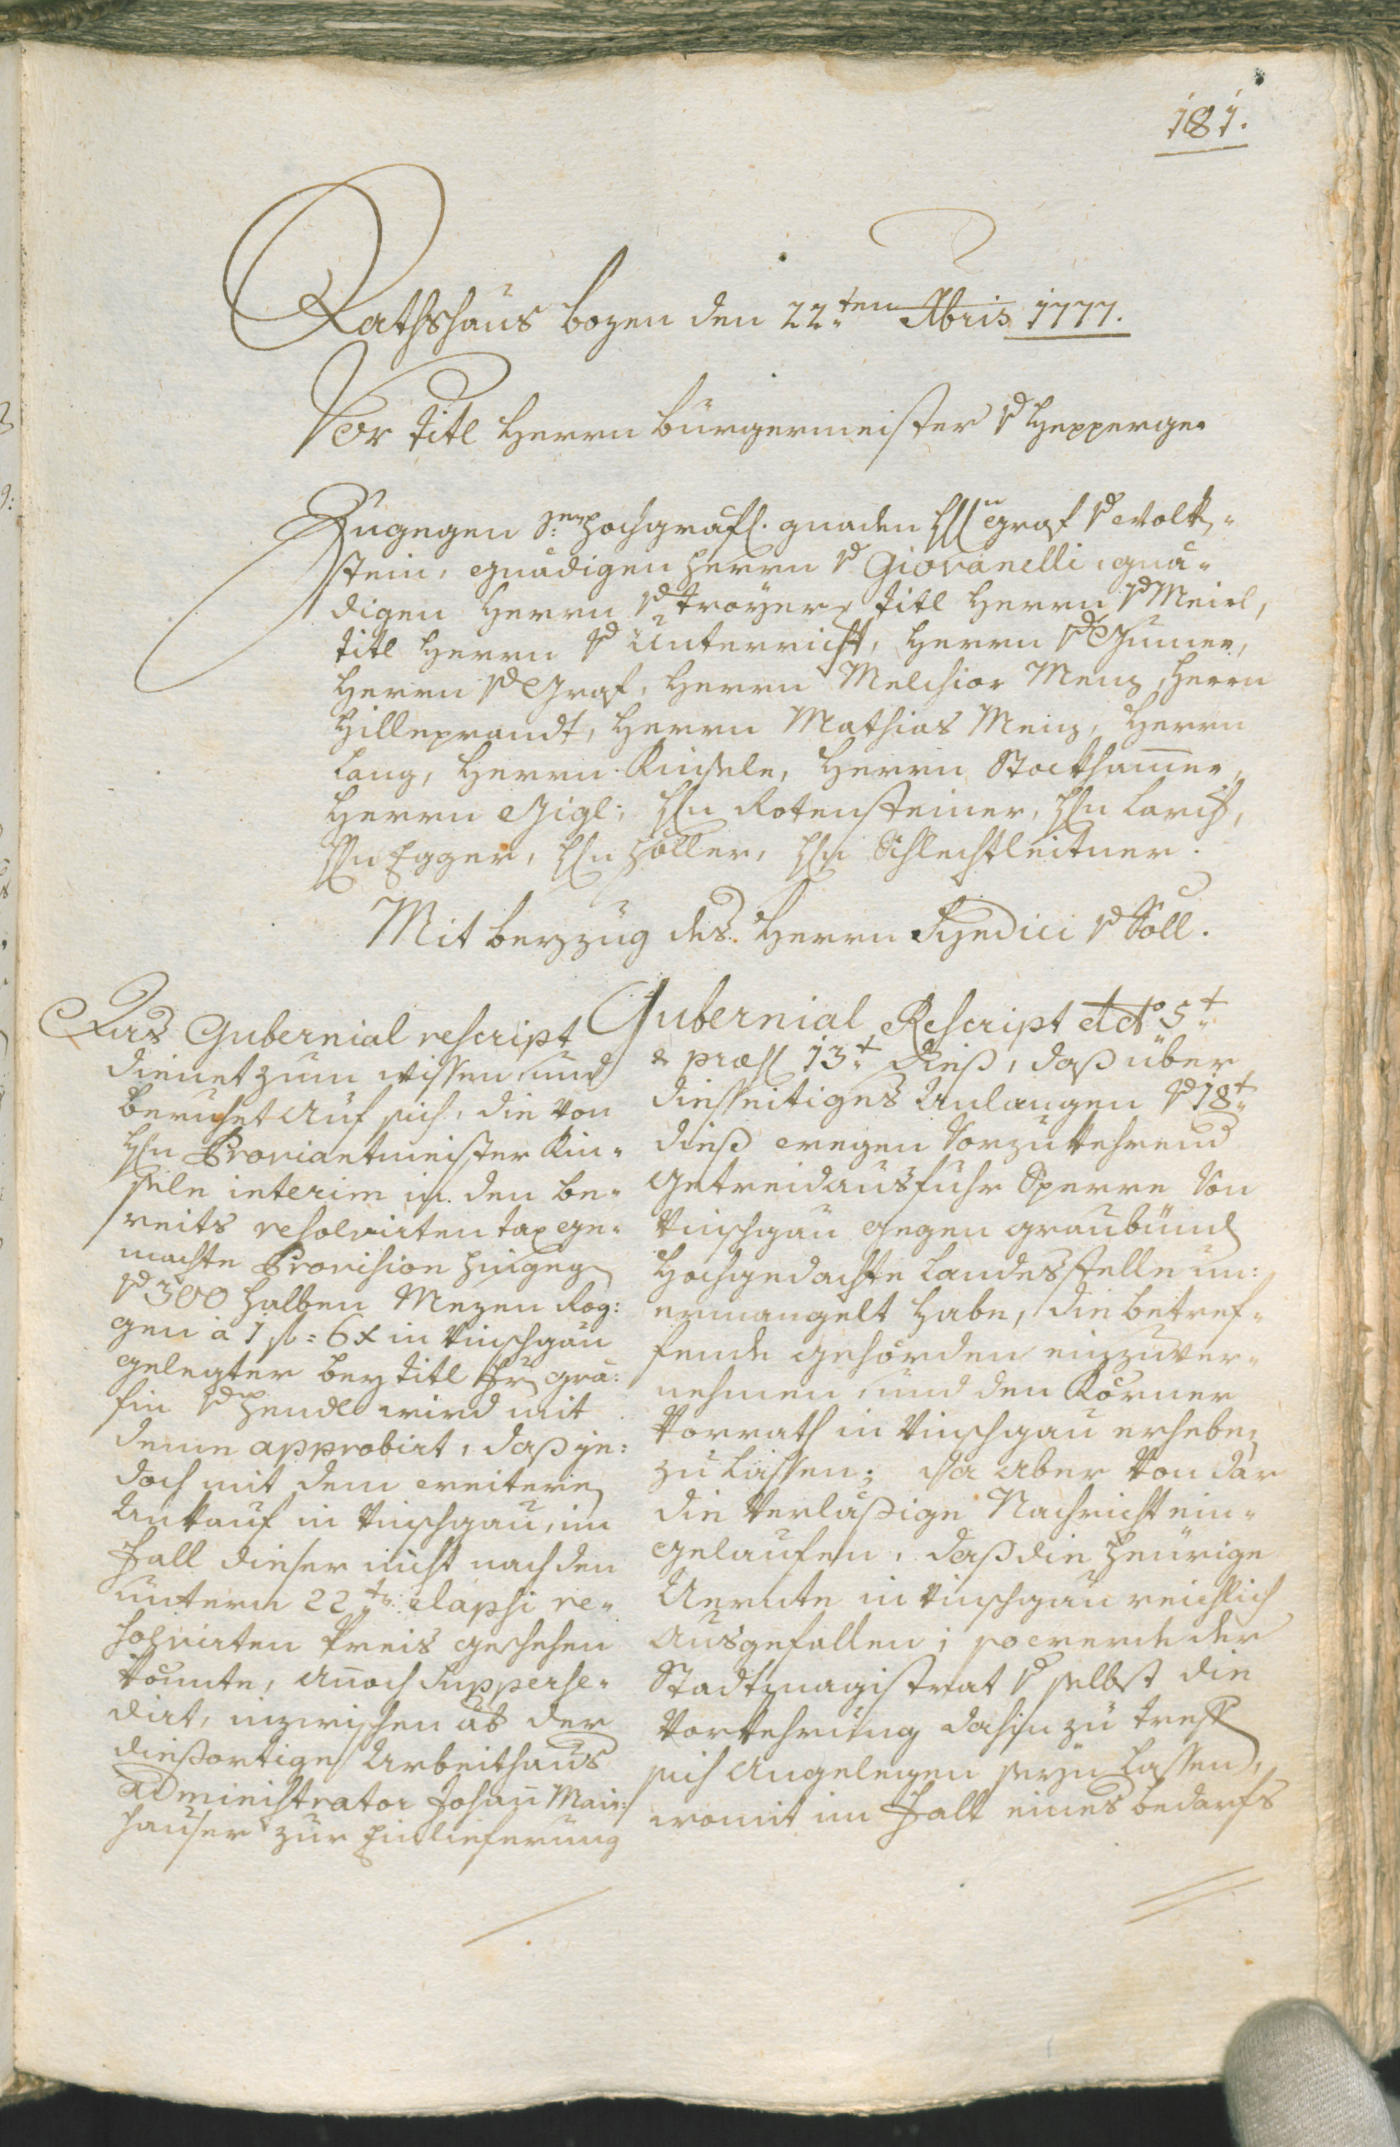 181.
Rathshaus Bozen den 22.ten 7bris 1777.
Vor titl Herrn Bürgermeister v Hepperger
Zugegen Sr. Hochgräfl. gnaden H Graf v Wolk=
stein, gnädigen Herrn v Giovanelli, gnä=
digen Herrn v Troyer, titl Herrn v Meirl,
titl Herrn v Unterricht, Herrn v Gumer,
Herrn v Graf, Herrn Melchior Menz, Herrn
Hilleprandt, Herrn Mathias Menz, Herrn
Lang, Herrn Kinsele, Herrn Stockhamer,
Herrn Gigl, Hn Rotensteiner, Hn Larch,
Hn Egger, Hn Holler, Hn Schlechtleitner.
Mit beyzug des Herrn Syndici v Söll.
Das Gubernial rescript
dienet zum wissen, und
beruhet auf sich, die von
Hn Proviantmeister Kin=
sele interim in den be=
reits resolvirten tax ge=
machte Provision hingegen
v 300 halben Mezen Rog:
gen à 1 f: 6 x in Vinschgau
gelegter bey titl Fr grä:
fin v Hendl wird mit
deme approbirt, daß je:
doch mit dem weiteren
Ankauf in Vinschgau, im
Fall dieser nicht nach den
untern 22.t elapsi re=
solvirten Preis geschehen
könnte, anoch supperse=
dirt, inzwischen ab der
dießortigen Arbeithaus
administrator Johann Mair:
hauser zur Einlieferung
Gubernial Rescript ddo 5.t
& præs 13.t dieß, daß über
diesseitiges Anlangen v 18.t
dieß wegen Vorzukehrend
getreidausfuhr Sperre von
Vinschgau gegen graubünd
Hochgedachte Landesstelle un:
ermangelt habe, die betref=
fende gehörden einzuver=
nehmen, und den Körner
Vorrath in Vinschgau erheben
zu lassen; da aber von dar
die verläßige Nachricht ein=
gelaufen, daß die heurige
Aernte in Vinschgau reichlich
ausgefallen; so werde der
Stadtmagistrat v selbst die
Vorkehrung dahin zu treffen
sich angelegen seyn lassen,
womit im Fall eines bedarfs